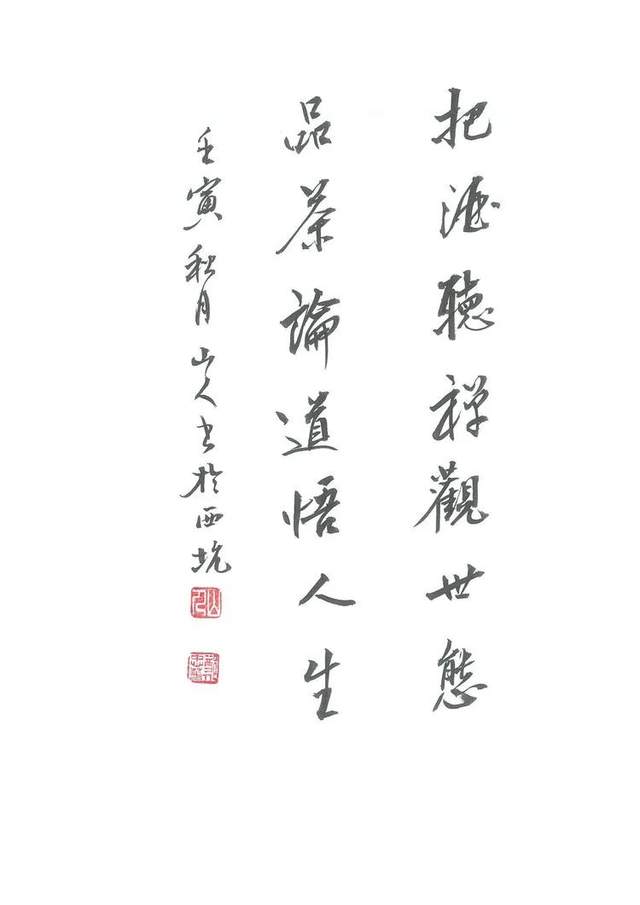 把酒聽禅觀世態
品茶論道悟人生
壬寅秋月山人书於西坑
山人